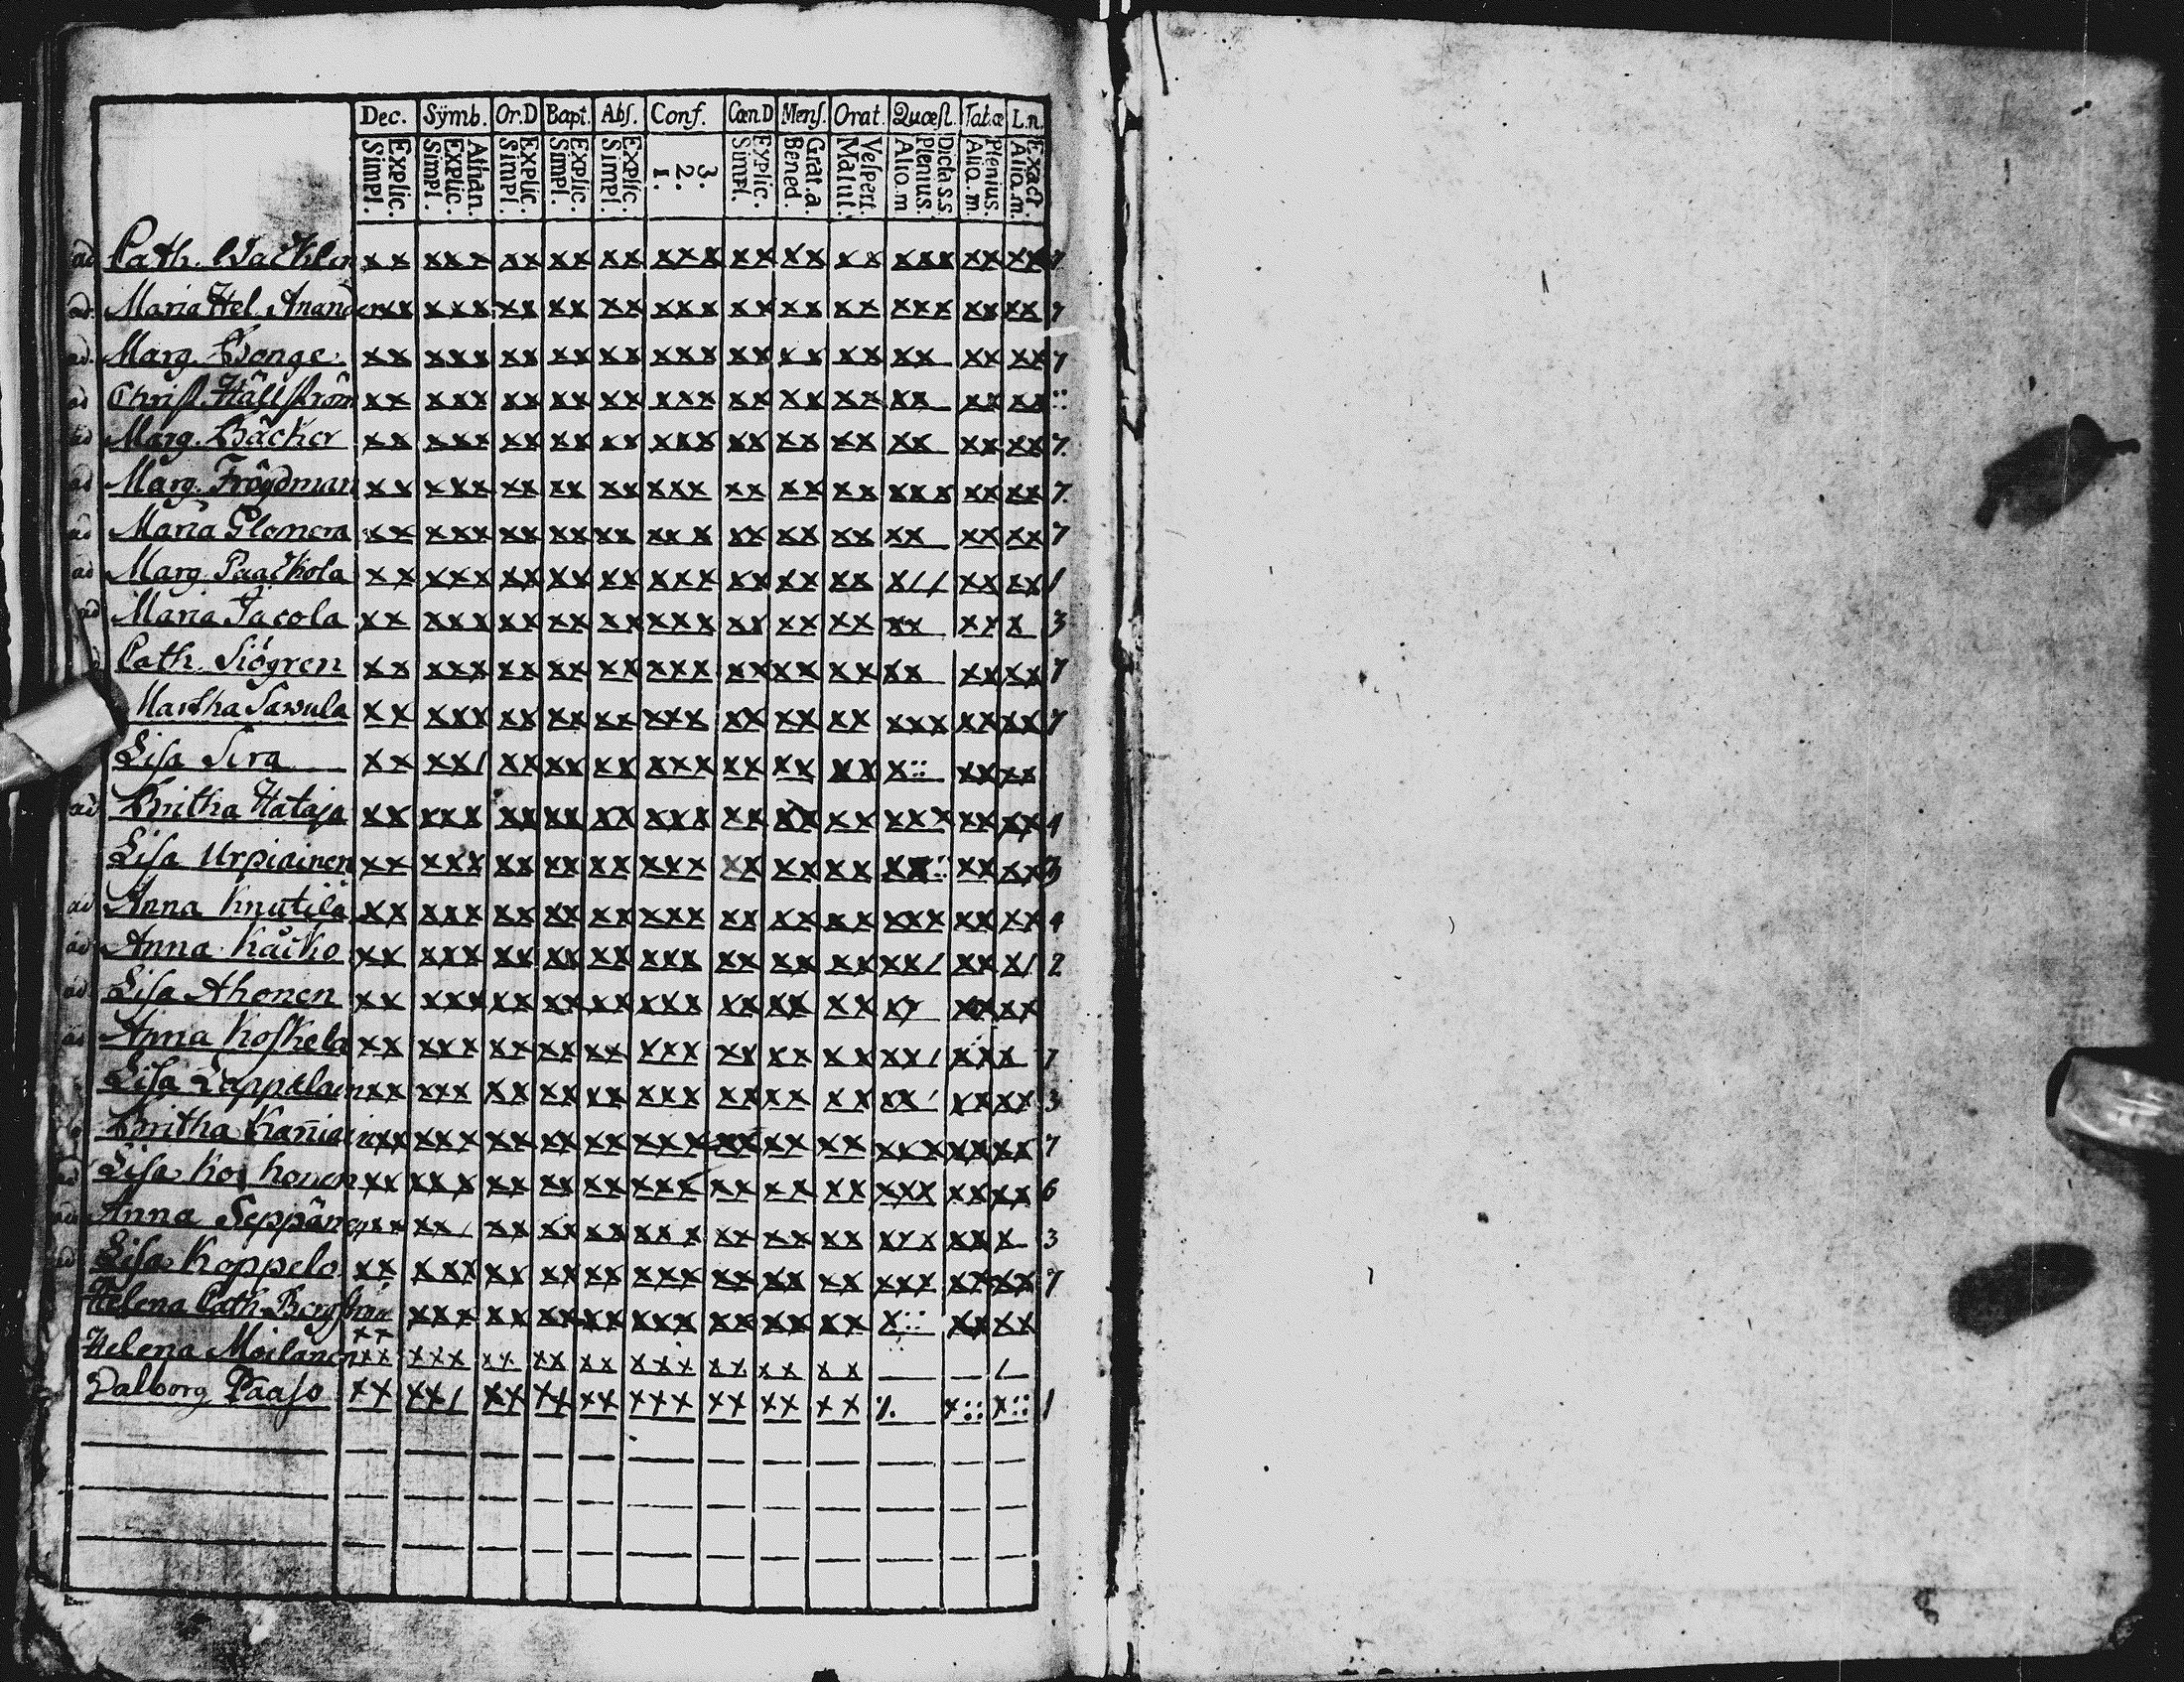 Dec. Sÿmb. Or.D Bapt. Abſ. Conf. Cœn.D Menſ. Orat. Quæſt. Tab.œ L.n.
Explic. Simpl. Athan. Explic. Simpl. Explic. Simpl. Explic. Simpl. Explic. Simpl. 3. 2. 1. Explic. Simpl. Grat.a. Bened. Veſpert. Matut. Dicta S.S. Plenius. Aliq.m Plenius. Aliq.m Exact. Aliq.m.
ad Cath. xx xxx xx xx xx xxx xx xx xx xxx xx xx 7
ad. Maria Hel. Anander xx xxx xx xx xx xxx xx xx xx xxx xx xx 7
ad. Marg. xx xxx xx xx xx xxx xx xx xx xx xx xx 7
ad Chriſt. Hällſtröm xx xxx xx xx xx xxx xx xx xx xx xx xx ::
ad Marg. Bäcker xx xxx xx xx xx xxx xx xx xx xx xx xx 7.
ad Marg. Frögdman xx xxx xx xx xx xxx xx xx xx xxx xx xx 7.
ad Maria xx xxx xx xx xx xxx xx xx xx xx xx xx 7
ad Marg. Paackola xx xxx xx xx xx xxx xx xx xx x// xx xx 1
ad Maria Jacola xx xxx xx xx xx xxx xx xx xx xx xx x 3
Cath. Siögren xx xxx xx xx xx xxx xx xx xx xx xx xx 7
Martha Sawula xx xxx xx xx xx xxx xx xx xx xxx xx xx 7
Liſa Sira xx xx/ xx xx xx xxx xx xx xx x:: xx xx
ad Britha Hataja xx xxx xx xx xx xxx xx xx xx xxx xx xx 4
Liſa Urpiainen xx xxx xx xx xx xxx xx xx xx xx:: xx xx 3
ad Anna Knutila xx xxx xx xx xx xxx xx xx xx xxx xx xx 4
ad Anna xx xxx xx xx xx xxx xx xx xx xx/ xx x/ 2
ad Liſa Ahonen xx xxx xx xx xx xxx xx xx xx xx xx xx
ad Anna Koſkela xx xxx xx xx xx xxx xx xx xx xx/ xx x 7
Liſa Lappalain xx xxx xx xx xx xxx xx xx xx xx/ xx xx 3
Britha xx xxx xx xx xx xxx xx xx xx xxx xx xx 7
ad Liſa xx xxx xx xx xx xxx xx xx xx xxx xx xx 6
ad Anna Seppänen xx xx/ xx xx xx xxx xx xx xx xxx xx x 3
ad Liſa Koppelo xx xxx xx xx xx xxx xx xx xx xxx xx xx 7
Helena Cath. Bergſtröm xx xxx xx xx xx xxx xx xx xx x:: xx xx
Helena Moilanen xx xxx xx xx xx xxx xx xx xx /
Valborg Paaſo xx xx/ xx xx xx xxx xx xx xx x:: x:: 1